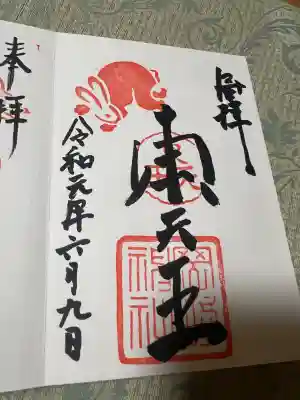 奉拝
東天王
岡崎
神社
令和元年六月九日
奉拝